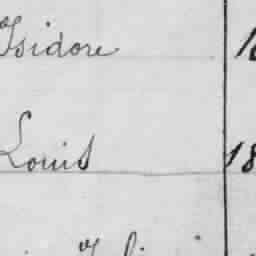 Isidore
Louis 18